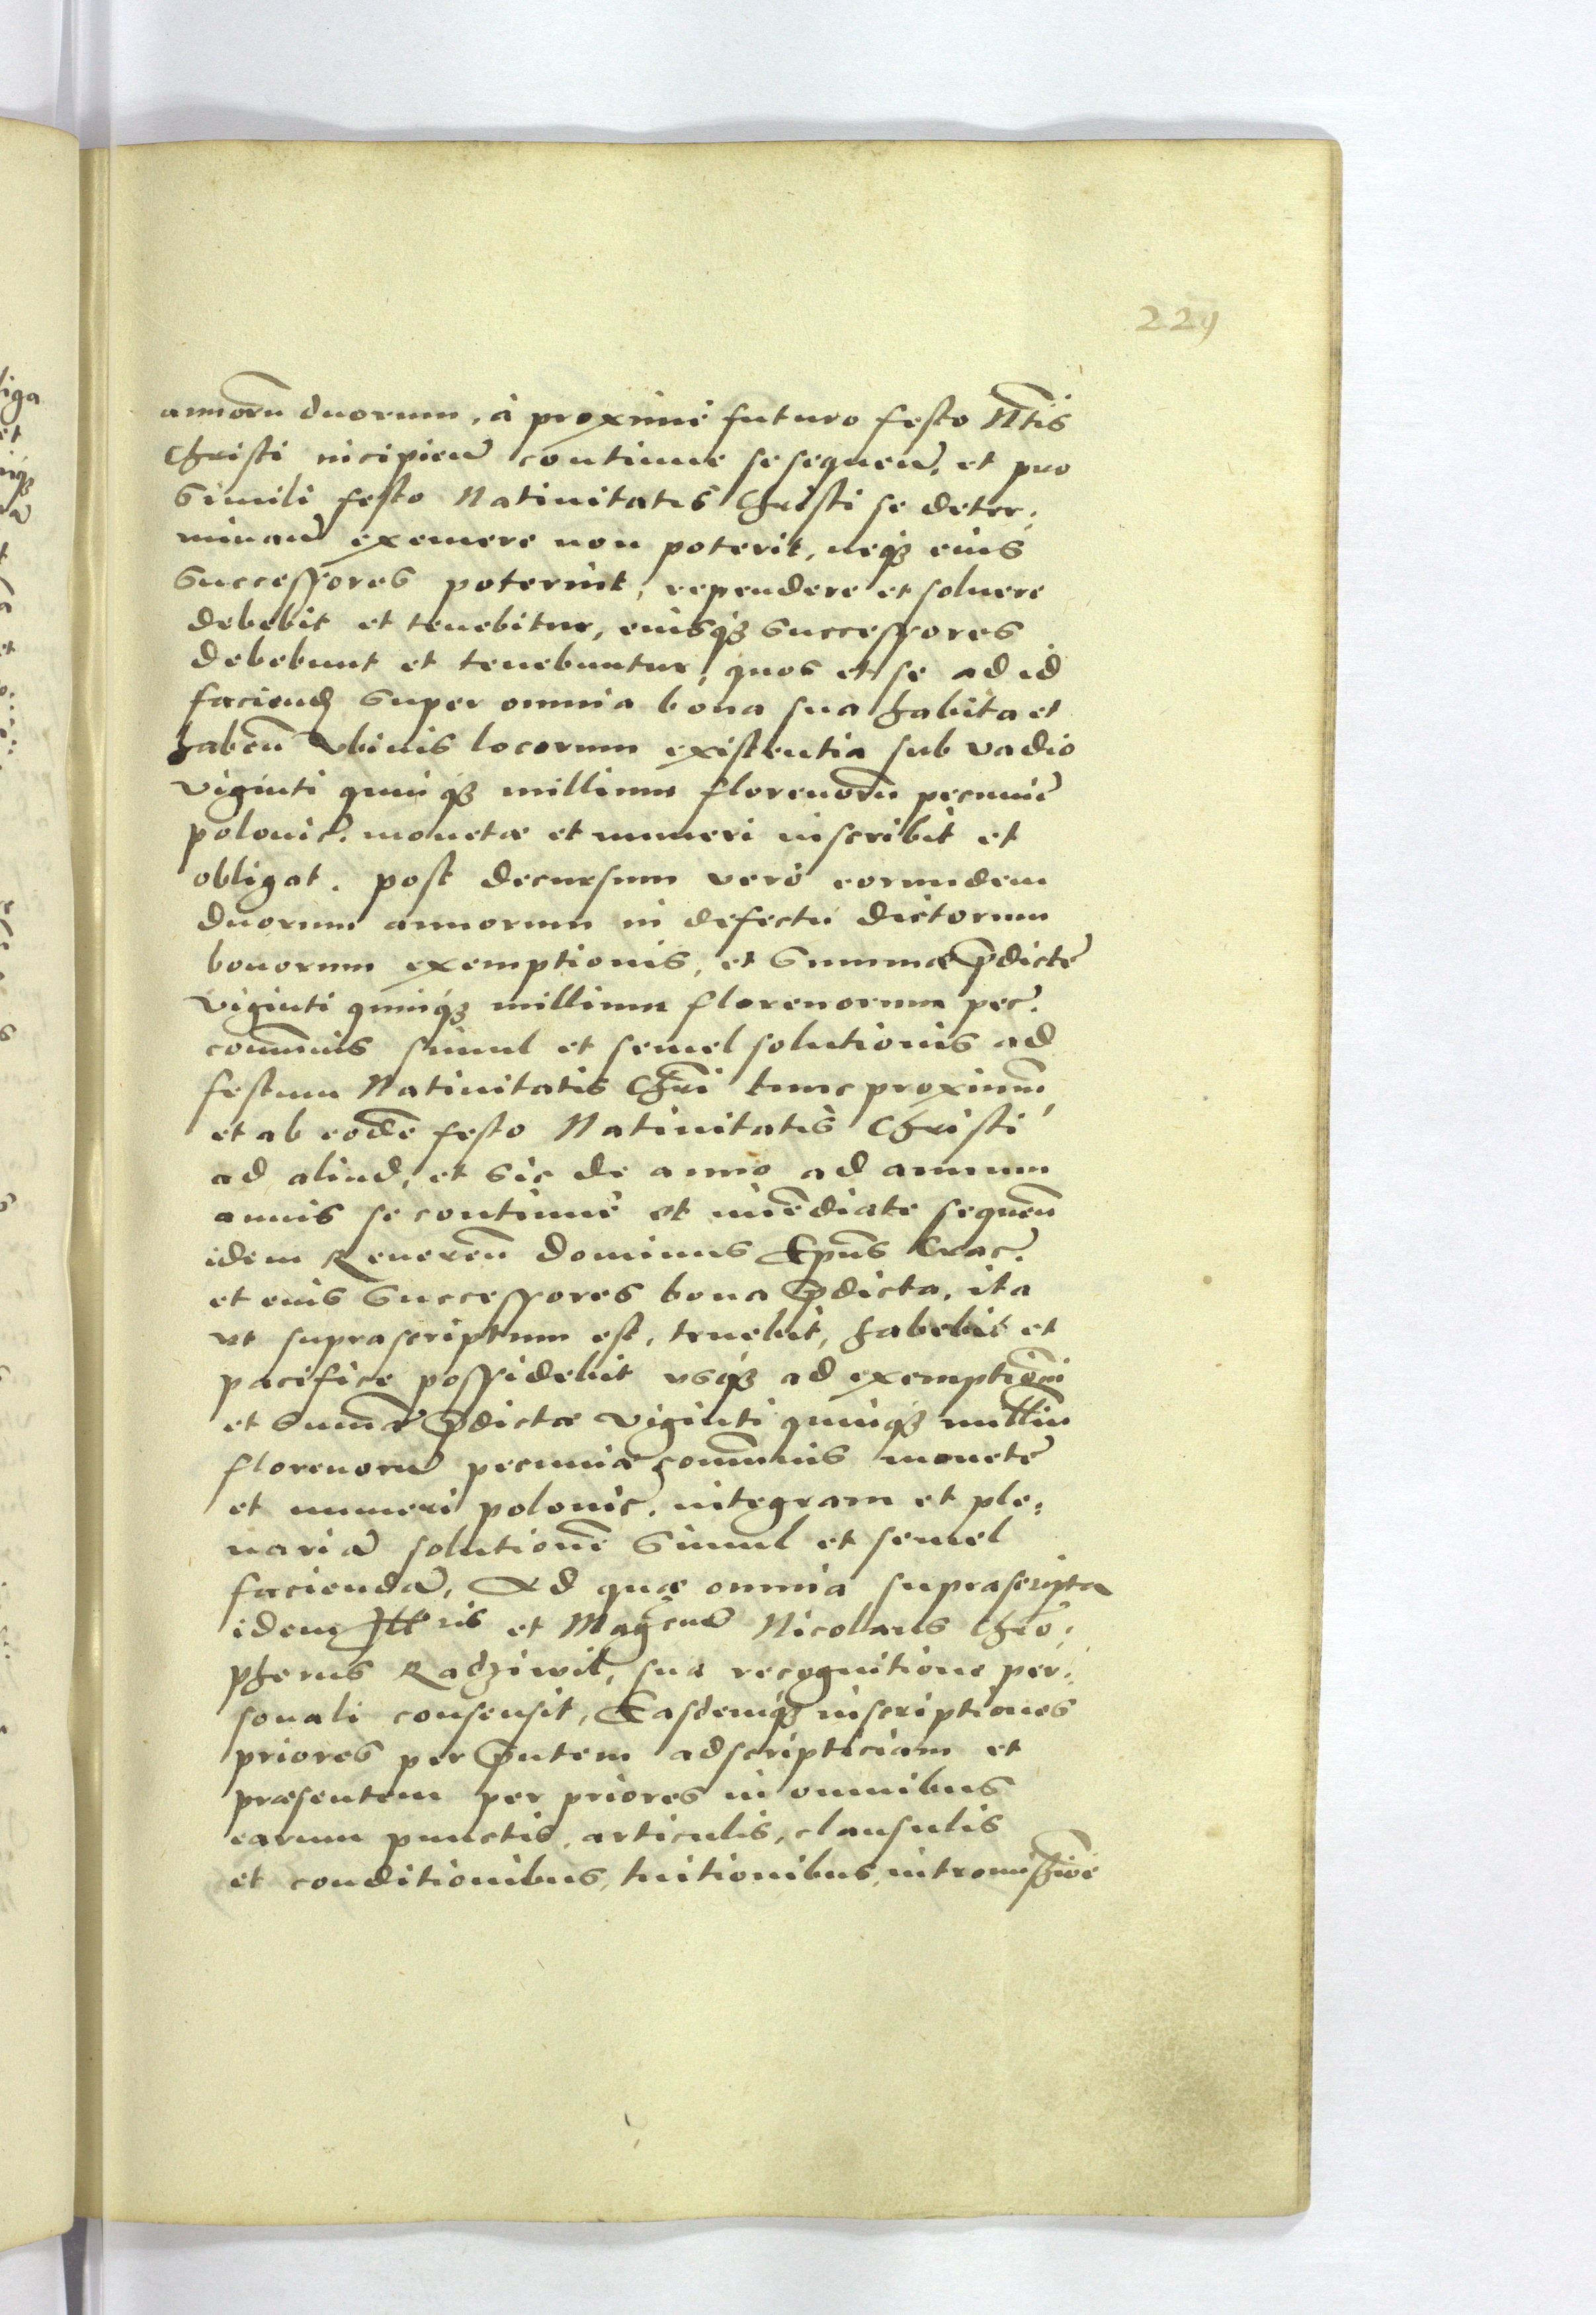 229
annorũ duorum, à proximè futuro festo Nt̃is
Christi incipieñ continue se sequeñ, et pro
simili festo Natiuitatis Christi se deter:
minañ exemere non poterit, neq₃ eius
successores poterint, rependere et soluere
debebit et tenebitur, eiusq₃ successores
debebunt et tenebuntur, quos et se ad id
faciend super omnia bona sua habita et
habeñ vbiuis locorum existentia sub vadio
viginti quinq₃ millium florenorũ pecuniẽ
polonic̃. monetæ et numeri inscribit et
obligat. post decursum verò eorundem
duorum annorum in defectu dictorum
bonorum exemptionis, et summæ p̃dictẽ
viginti quinq₃ millium florenorum pec̃.
com̃unis simul et semel solutionis ad
festum Natiuitatis Chr̃i tunc proximũ,
et ab eodẽ festo Natiuitatis Christi
ad aliud, et sic de anno ad annum
annis se continuè et im̃ediate sequeñ
idem Reuereñ dominus Ep̃us Crac̃.
et eius successores bona p̃dicta, ita
vt suprascriptum est, tenebit, habebit et
pacifice possidebit vsq₃ ad exemptiõni
et summæ p̃dictæ viginti quinq₃ milliũ
florenorũ pecuniæ com̃unis monetẽ
et numeri polonic̃. integram et ple:
nariã solutionẽ simul et semel
faciendã, Ad quæ omnia suprascripta
idem Illris et Magcus Nicolaus Chro:
pherus Radziwil, sua recognitione per:
sonali consensit, Easdemq₃ inscriptiones
priores per p̃ntem adscripticiam et
præsentem per priores in omnibus
earum punctis, articulis, clausulis
et conditionibus, tuitionibus, intromissiõe